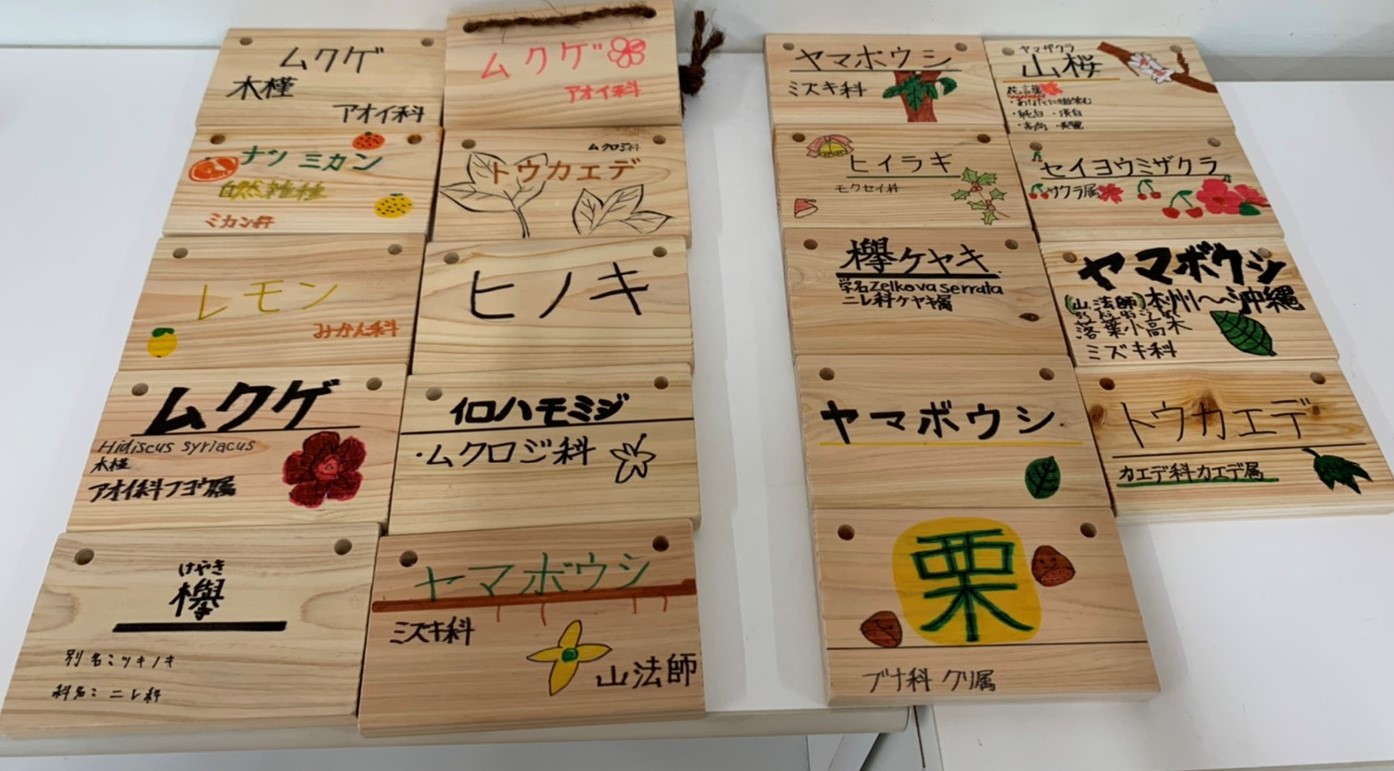 ムクゲ
木槿
アオイ科
ムクゲ
アオイ科
ナツミカン
自然雑種
ミカン科
ムクロジ科
トウカエデ
レモン
みかん科
ヒノキ
ムクゲ
Hidiscus syriacus
木槿
アオイ科フヨウ属
イロハモミジ
・ムクロジ科
けやき
欅
別名:ツキノキ
科名:ニレ科
ヤマボウシ
ミズキ科
山法師
ヤマボウシ
ミズキ科
ヤマザクラ
山桜
花言葉
・あなたに微笑む
・純白・淡白
・高尚・美麗
ヒイラギ
モクセイ科
セイヨウミザクラ
サクラ属
欅ケヤキ
学名Zelkova serrata
ニレ科ケヤキ属
ヤマボウシ
(山法師)本州〜沖縄
落葉小高木
ミズキ科
ヤマボウシ
トウカエデ
カエデ科カエデ属
栗
ブナ科 クリ属